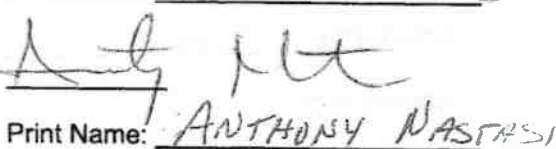 Print Name: ANTHONY NASTASI